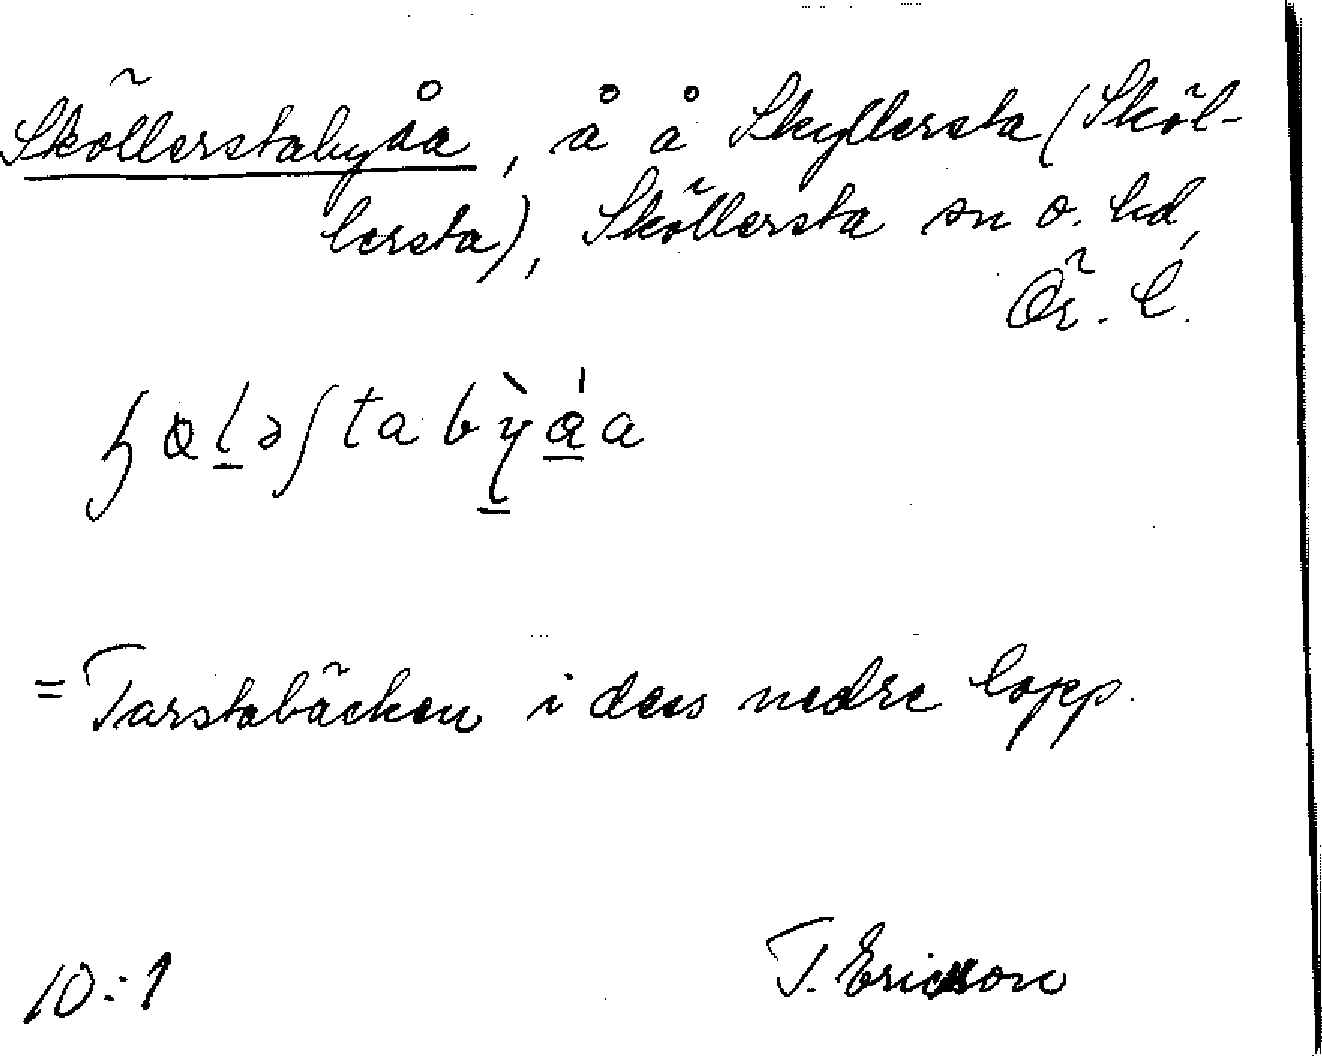 Sköllerstabyåa, å å Skyllersta (Sköl-
lersta), Sköllersta sn o. hd,
Ör. l.
= Tarstabäcken i dess nedre lopp.
10:1 T. Ericsson